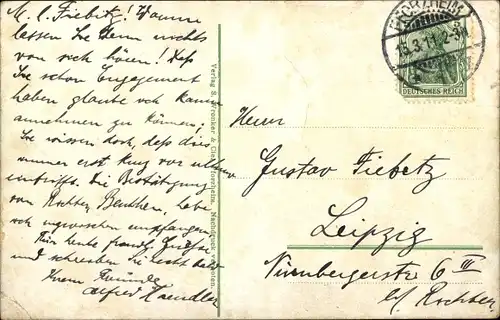 M. l. Fiebitz! Warum
lassen Sie denn nichts
von sich hören! Daß
Sie schon Engagement
haben glaube ich kaum
annehmen zu können!
Sie wissen doch, daß dies
immer erst kurz vor
eintrifft. Die Bestätigung
von Richter, habe
ich empfangen
Für heute freundl. Grüße
und schreiben Sie recht bald
Ihrem Freunde
Alfred Haendler
Verlag S. Wronker & Cie., Pforzheim. Nachdruck verboten.
PFORZHEIM
15.3.11. 2-3
DEUTSCHES REICH
Herrn
Gustav Fiebitz
Leipzig
Nürnbergerstr 6 III
b/ Richter